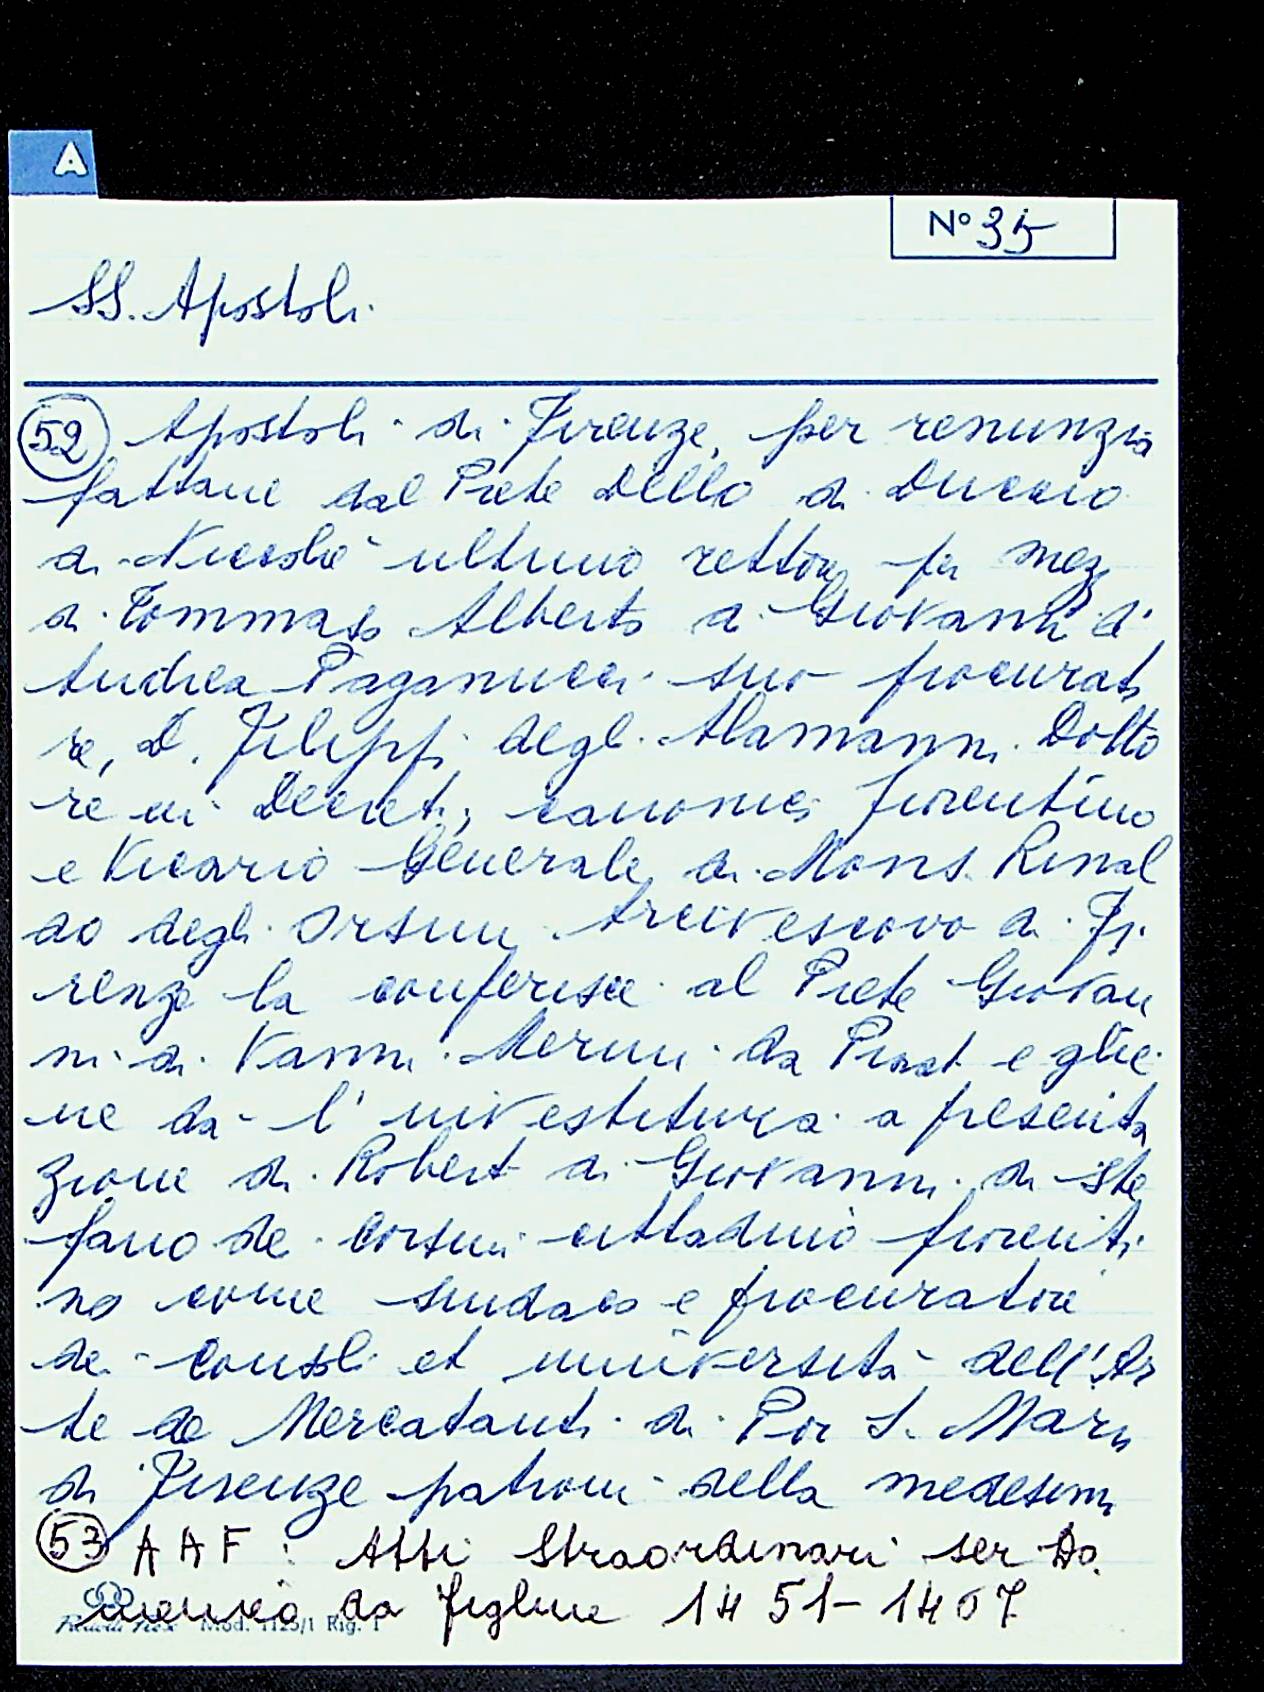 A
N° 35
SS. Apostoli.
52 Apostoli di Firenze, per renunzia
fattane dal Prete Dello di Duccio
di Niccolò ultimo rettore per mez
di Tommaso Alberto di Giovanni d'
Andrea Paganucci suo procurato
re, D. Filippi degli Alamanni Dotto
re in Decreti, canonico fiorentino
e Vicario Generale di Mons. Rinal
do degli Orsini Arcivescovo di Fi
renze la conferisce al Prete Giovan
ni di Vanni Merini da Prat e glie
ne dà l'investitura a presenta
zione di Robert di Giovanni di Ste
fano de Corsini cittadino fiorenti
no come sindaco e procuratore
dei Consoli et università dell'Ar
te de Mercatanti di Por S. Maria
di Firenze patroni della medesima
53 AAF: Atti Straordinari ser Do
menico da Figline 1451-1407
Mod. 1125/1 Rig. 1